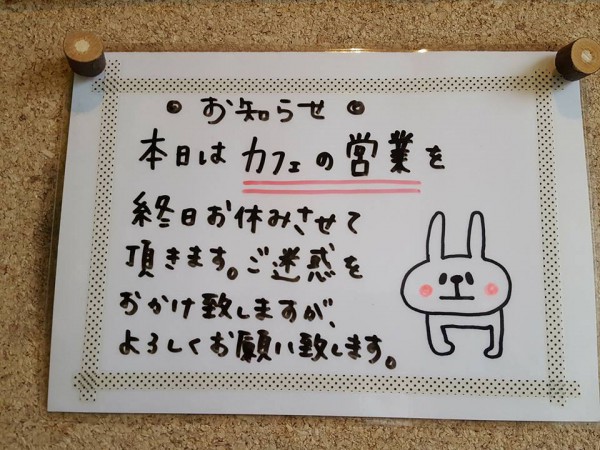 お知らせ
本日はカフェの営業を
終日お休みさせて
頂きます。ご迷惑を
おかけ致しますが、
よろしくお願い致します。